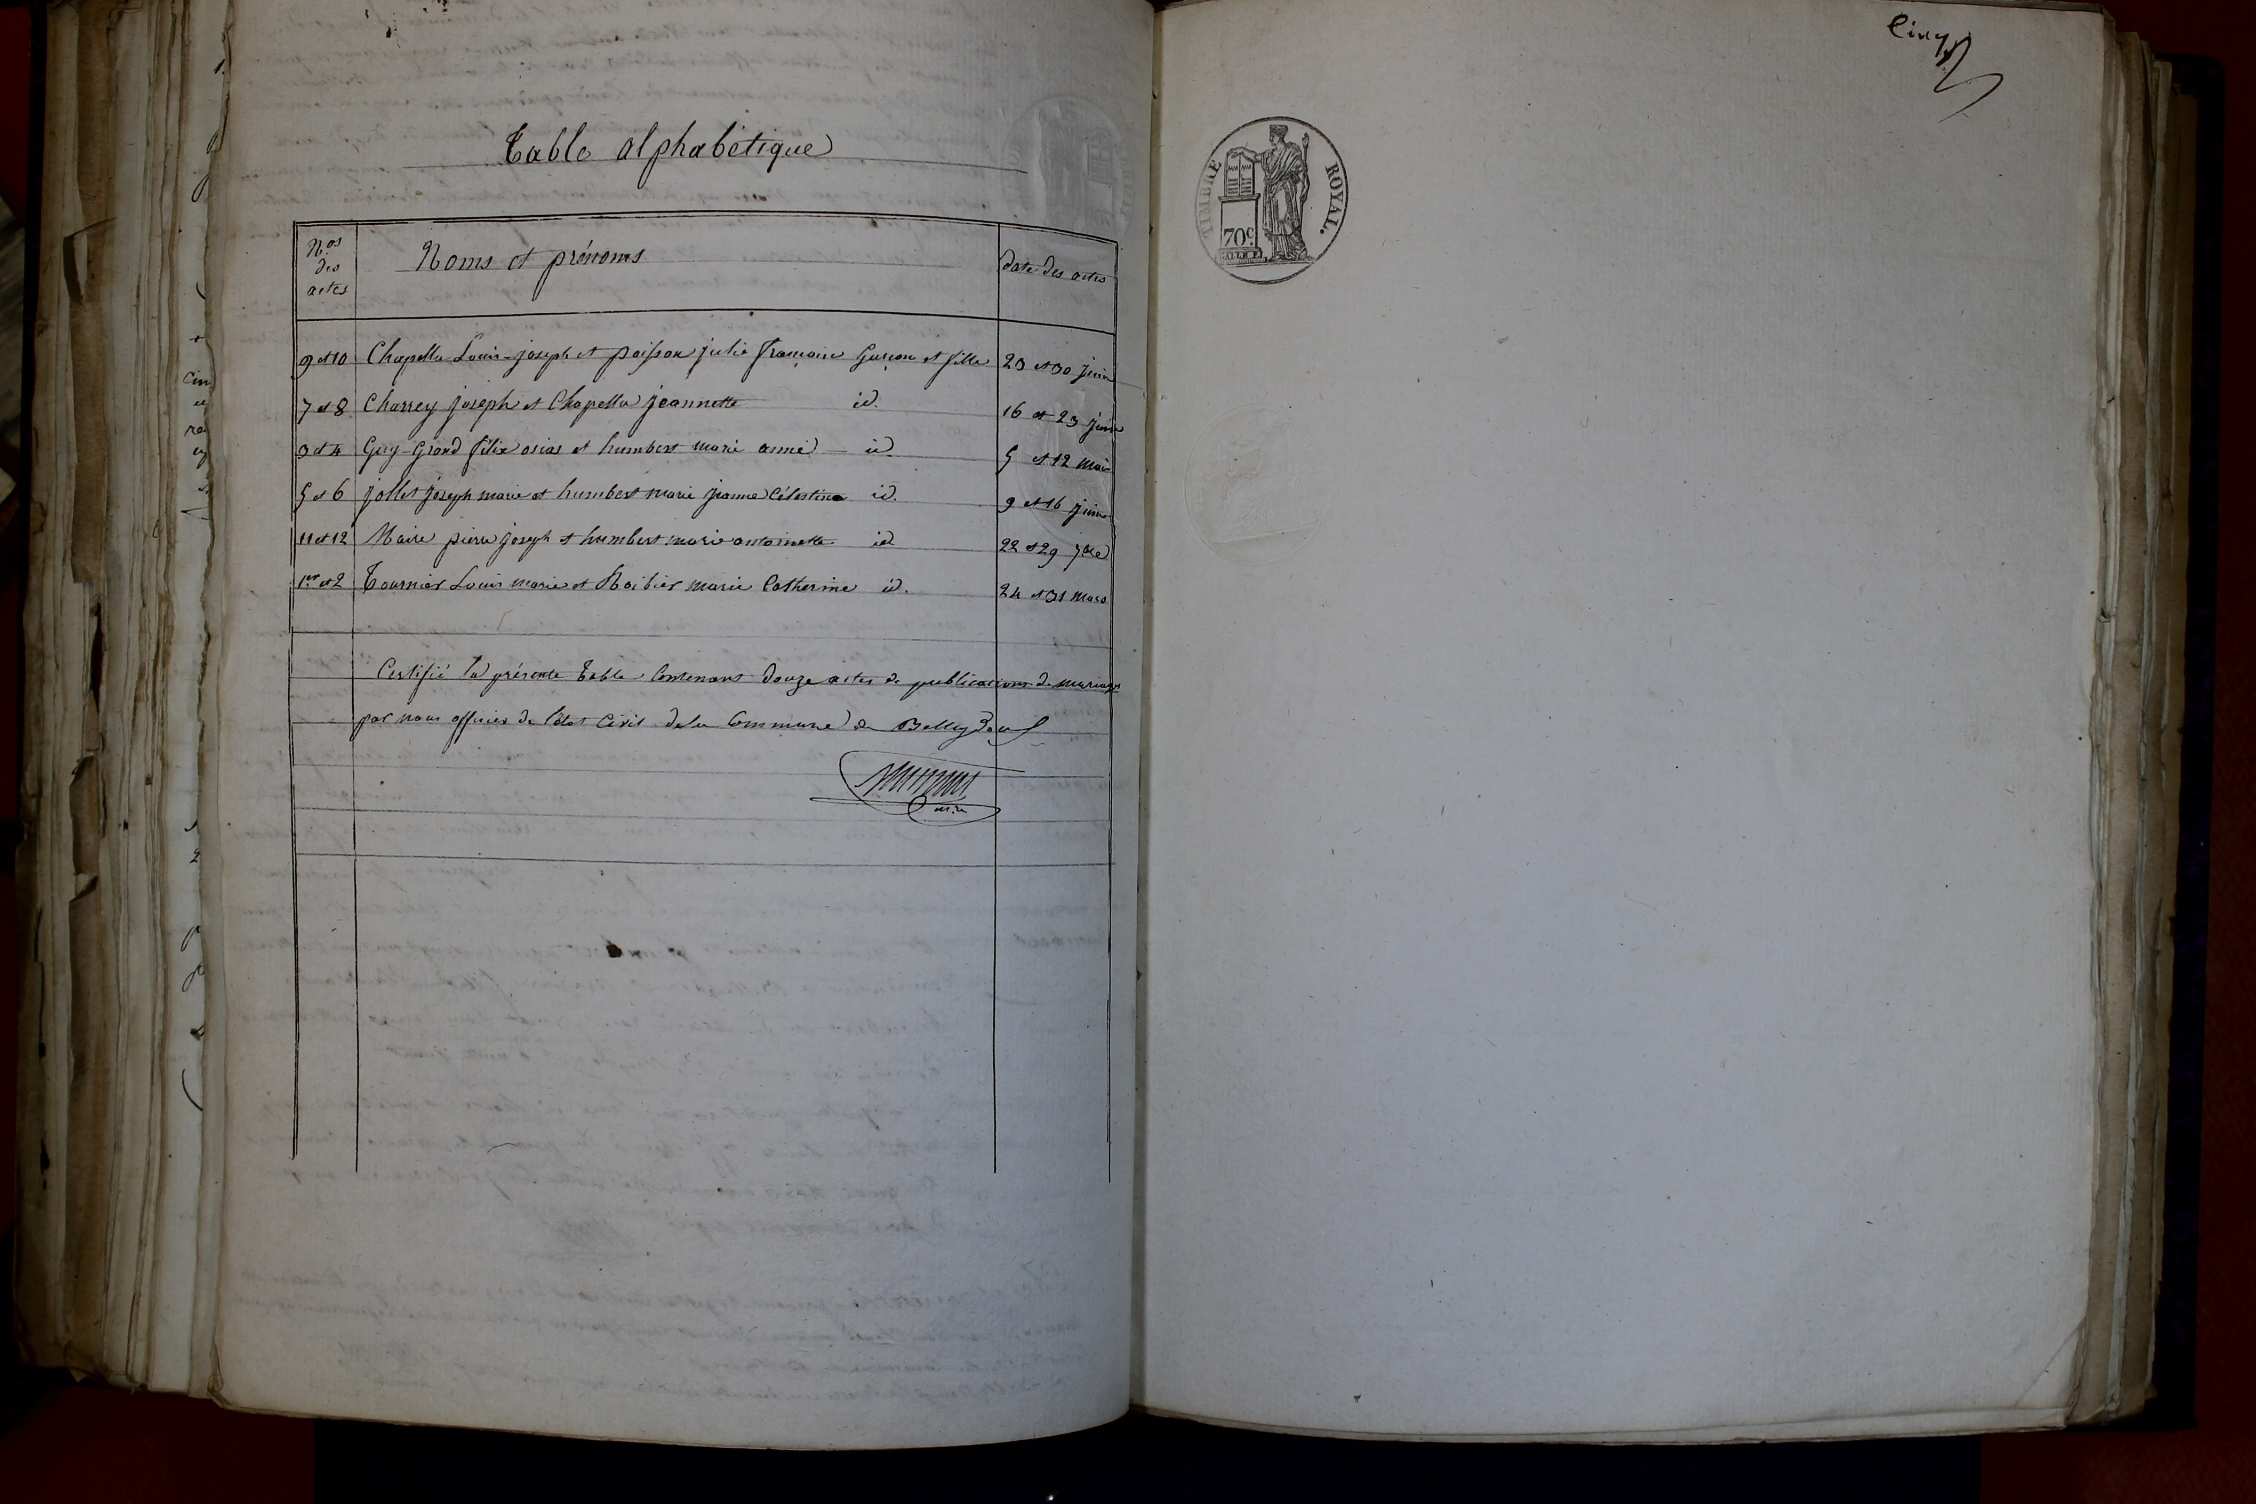 Table alphabétique
Nos des actes
Noms et prénoms
date des actes
9 et 10 Chapella Louis-joseph et poisson julie françoise Garçon et fille 23 et 30 juin
7 et 8 Charrey joseph et Chapella jeannette id. 16 et 23 juin
3 et 4 Guy-Grand félix osias et humbert marie anne id. 5 et 12 mai
5 et 6 jollet joseph marie et humbert marie jeanne Célestine id. 9 et 16 juin
11 et 12 Maire pierre joseph et humbert marie antoinette id 22 et 29 7bre
1er et 2 Tournier Louis marie et Roibier marie Catherine id. 24 et 31 mars
Certifié la présente table contenant douze actes de publications de mariage
par nous officier de l'état civil de la Commune de Belleydoux
maire
Cinq
TIMBRE ROYAL.
70c